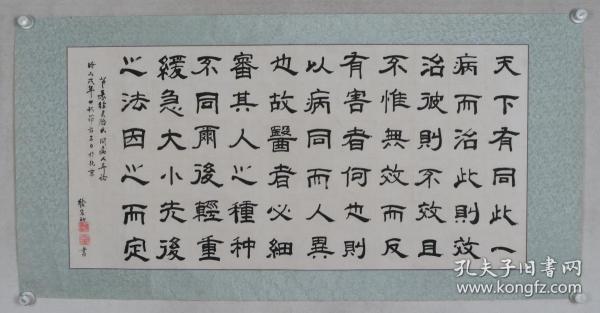 天下有同此一
病而治此則效
治彼則不效且
不惟無效而反
有害者何也則
以病同而人異
也故醫者必細
審其人之種种
不同爾後輕重
緩急大小先後
之法因之而定
書
孔夫子旧書网
www.kongfz.com